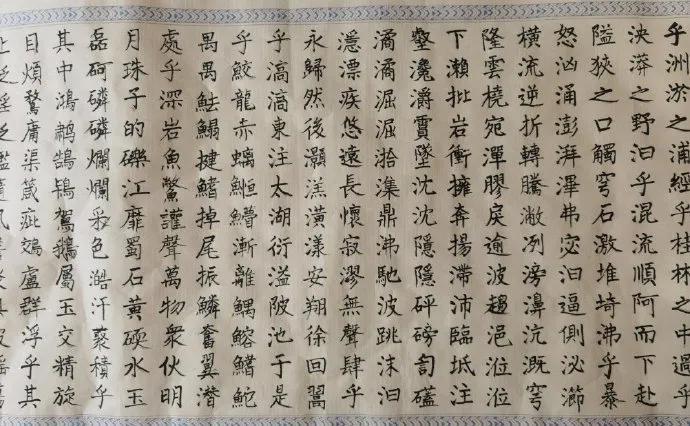 乎洲淤之浦經乎桂林之中過乎
泱漭之野汩乎混流順阿而下赴
隘狹之口觸穹石激堆埼沸乎暴
怒洶涌彭湃滭弗宓汩逼側泌瀄
橫流逆折轉騰潎洌滂濞沆溉穹
隆雲橈宛潬膠戾逾波趨浥涖涖
下瀨批岩衝擁奔揚滯沛臨坻注
壑瀺灂霣墜沈沈隱隱砰磅訇礚
潏潏淈淈湁潗鼎沸馳波跳沫汩
濦漂疾悠遠長懷寂漻無聲肆乎
永歸然後灝溔潢漾安翔徐回翯
乎滈滈東注太湖衍溢陂池于是
乎鮫龍赤螭䱭䲛漸離鰅鰫鰭鮀
禺禺魼鰨揵鰭掉尾振鱗奮翼潛
處乎深岩魚鱉讙聲萬物衆伙明
月珠子的礫江靡蜀石黃碝水玉
磊砢磷磷爛爛采色澔汗藂積乎
其中鴻鷫鵠鴇鴐鵝屬玉交精旋
目煩鶩庸渠箴疵鵁盧群浮乎其